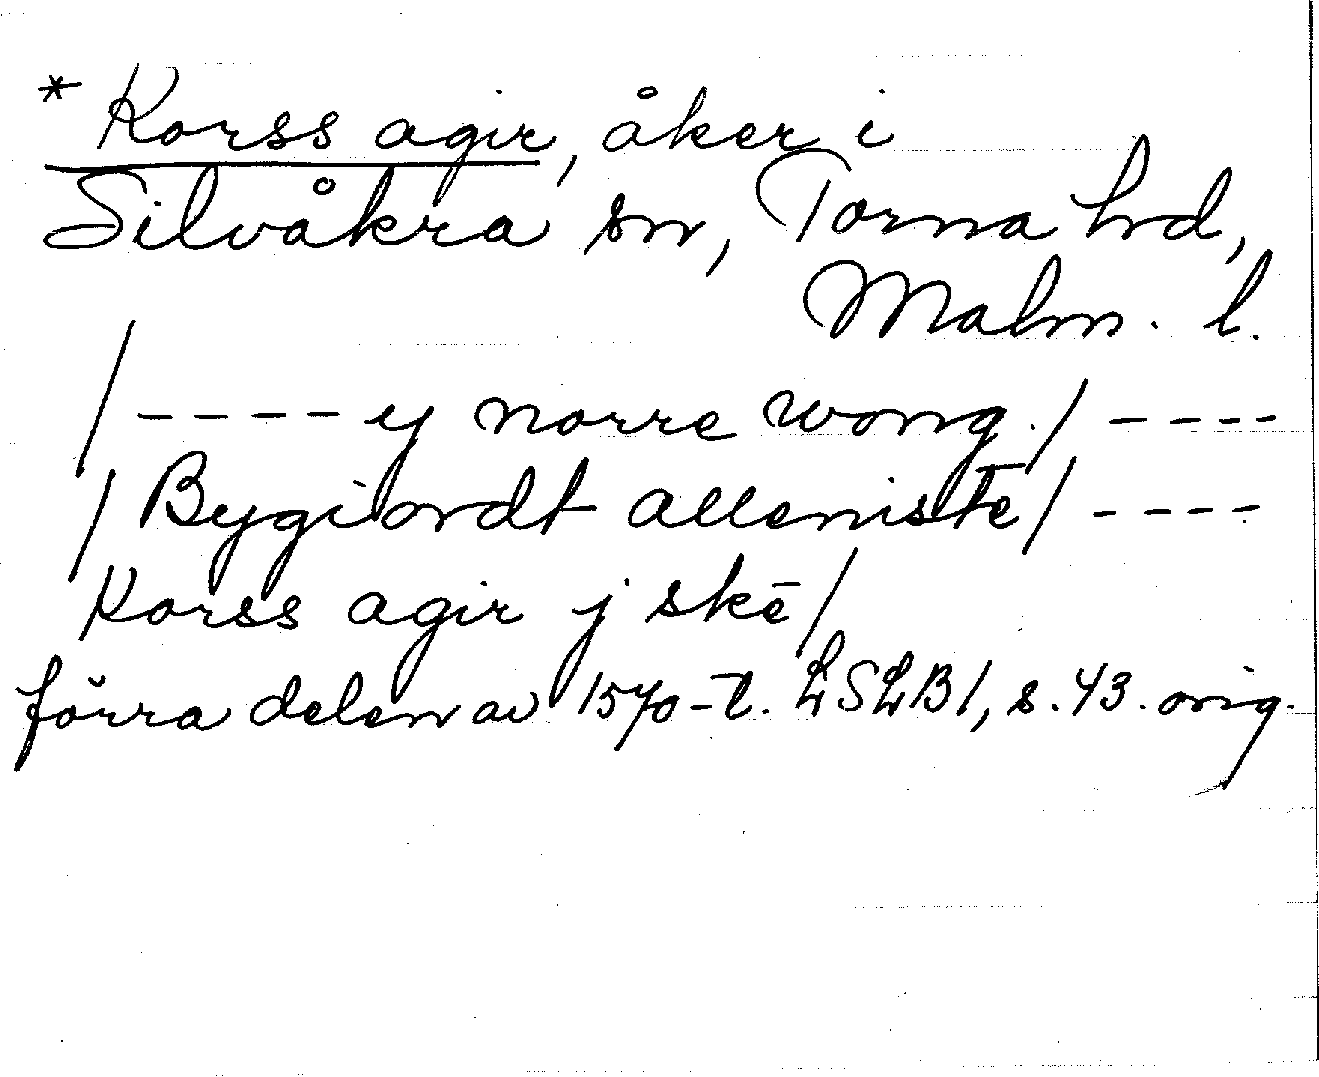 * Korss agir, åker i
Silvåkra sn, Torna hrd,
Malm. l.
/---- y norre wong./----
/Bygiordt allenistē/----
Korss agir j skē/
förra delen av 1570-t. LSLB1, s. 43. orig.